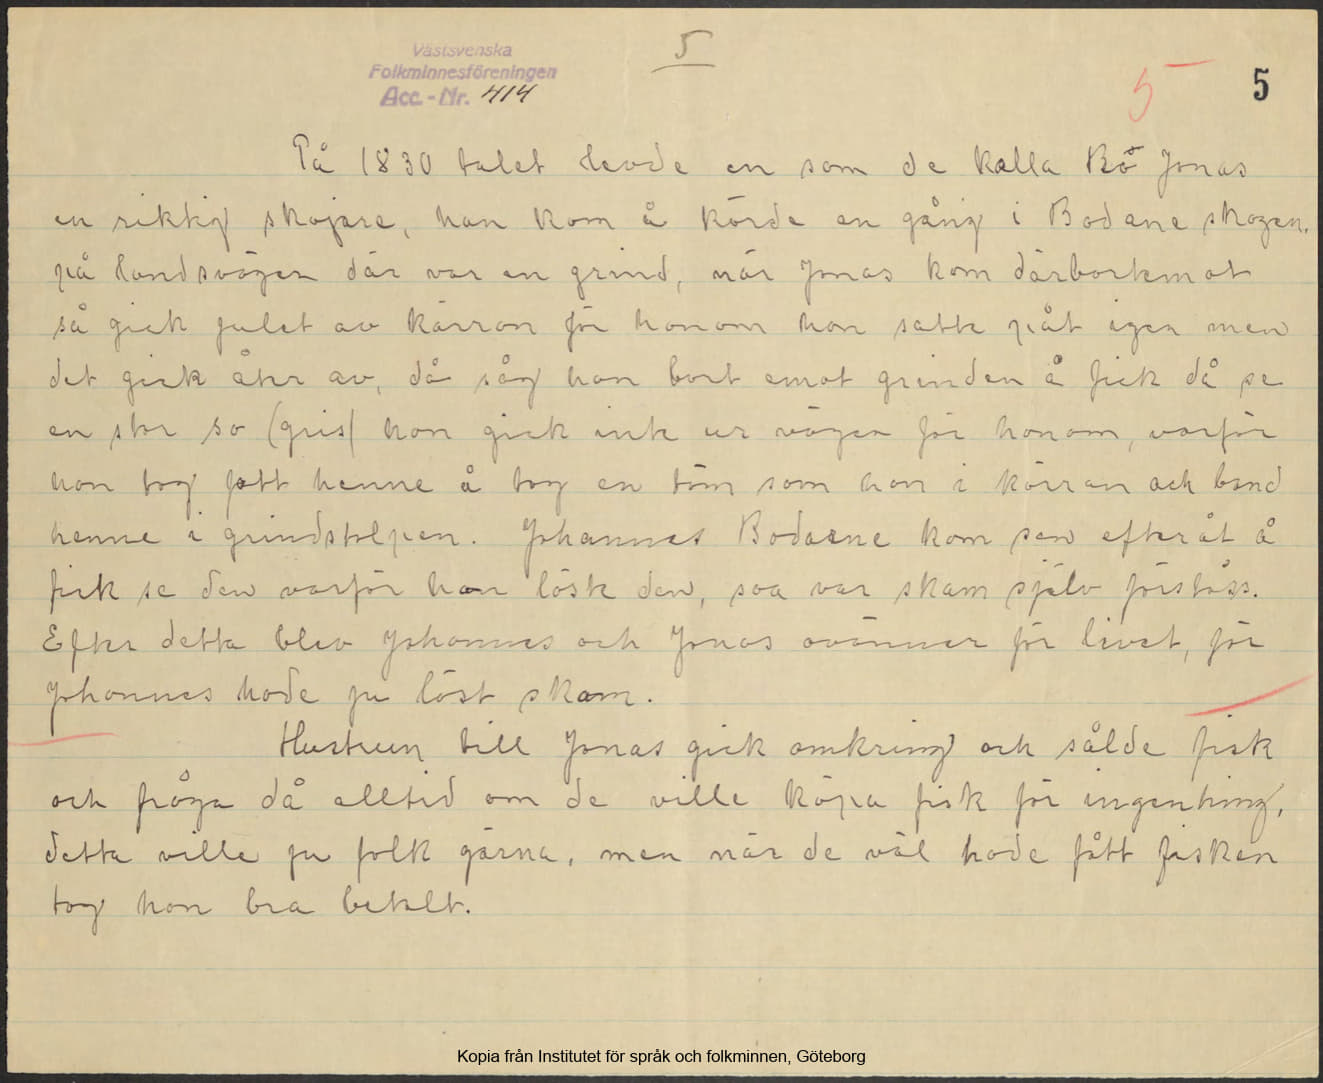 5
Västsvenska
Folkminnesföreningen
Acc.-Nr. 414
5 5
På 1830 talet levde en som de kalla Bö Jonas
en riktig skojare, han kom å körde en gång i Bodane skogen.
på landsvägen där var en grind, när Jonas kom därbortemot
så gick julet av kärran för honom han satte påt igen men
det gick åter av, då såg han bort emot grinden å fick då se
en stor so (gris) hon gick inte ur vägen för honom, varför
han tog fatt henne å tog en töm som han i kärran och band
henne i grindstolpen. Johannes Bodaene kom sen efteråt å
fick se den varför han löste den, soa var skam själv förståss.
Efter detta blev Johannes och Jonas ovänner för livet, för
Johannes hade ju löst skam.
Hustrun till Jonas gick omkring och sålde fisk
och fråga då alltid om de ville köpa fisk för ingenting,
detta ville ju folk gärna, men när de väl hade fått fisken
tog hon bra betalt.
Kopia från Institutet för språk och folkminnen, Göteborg